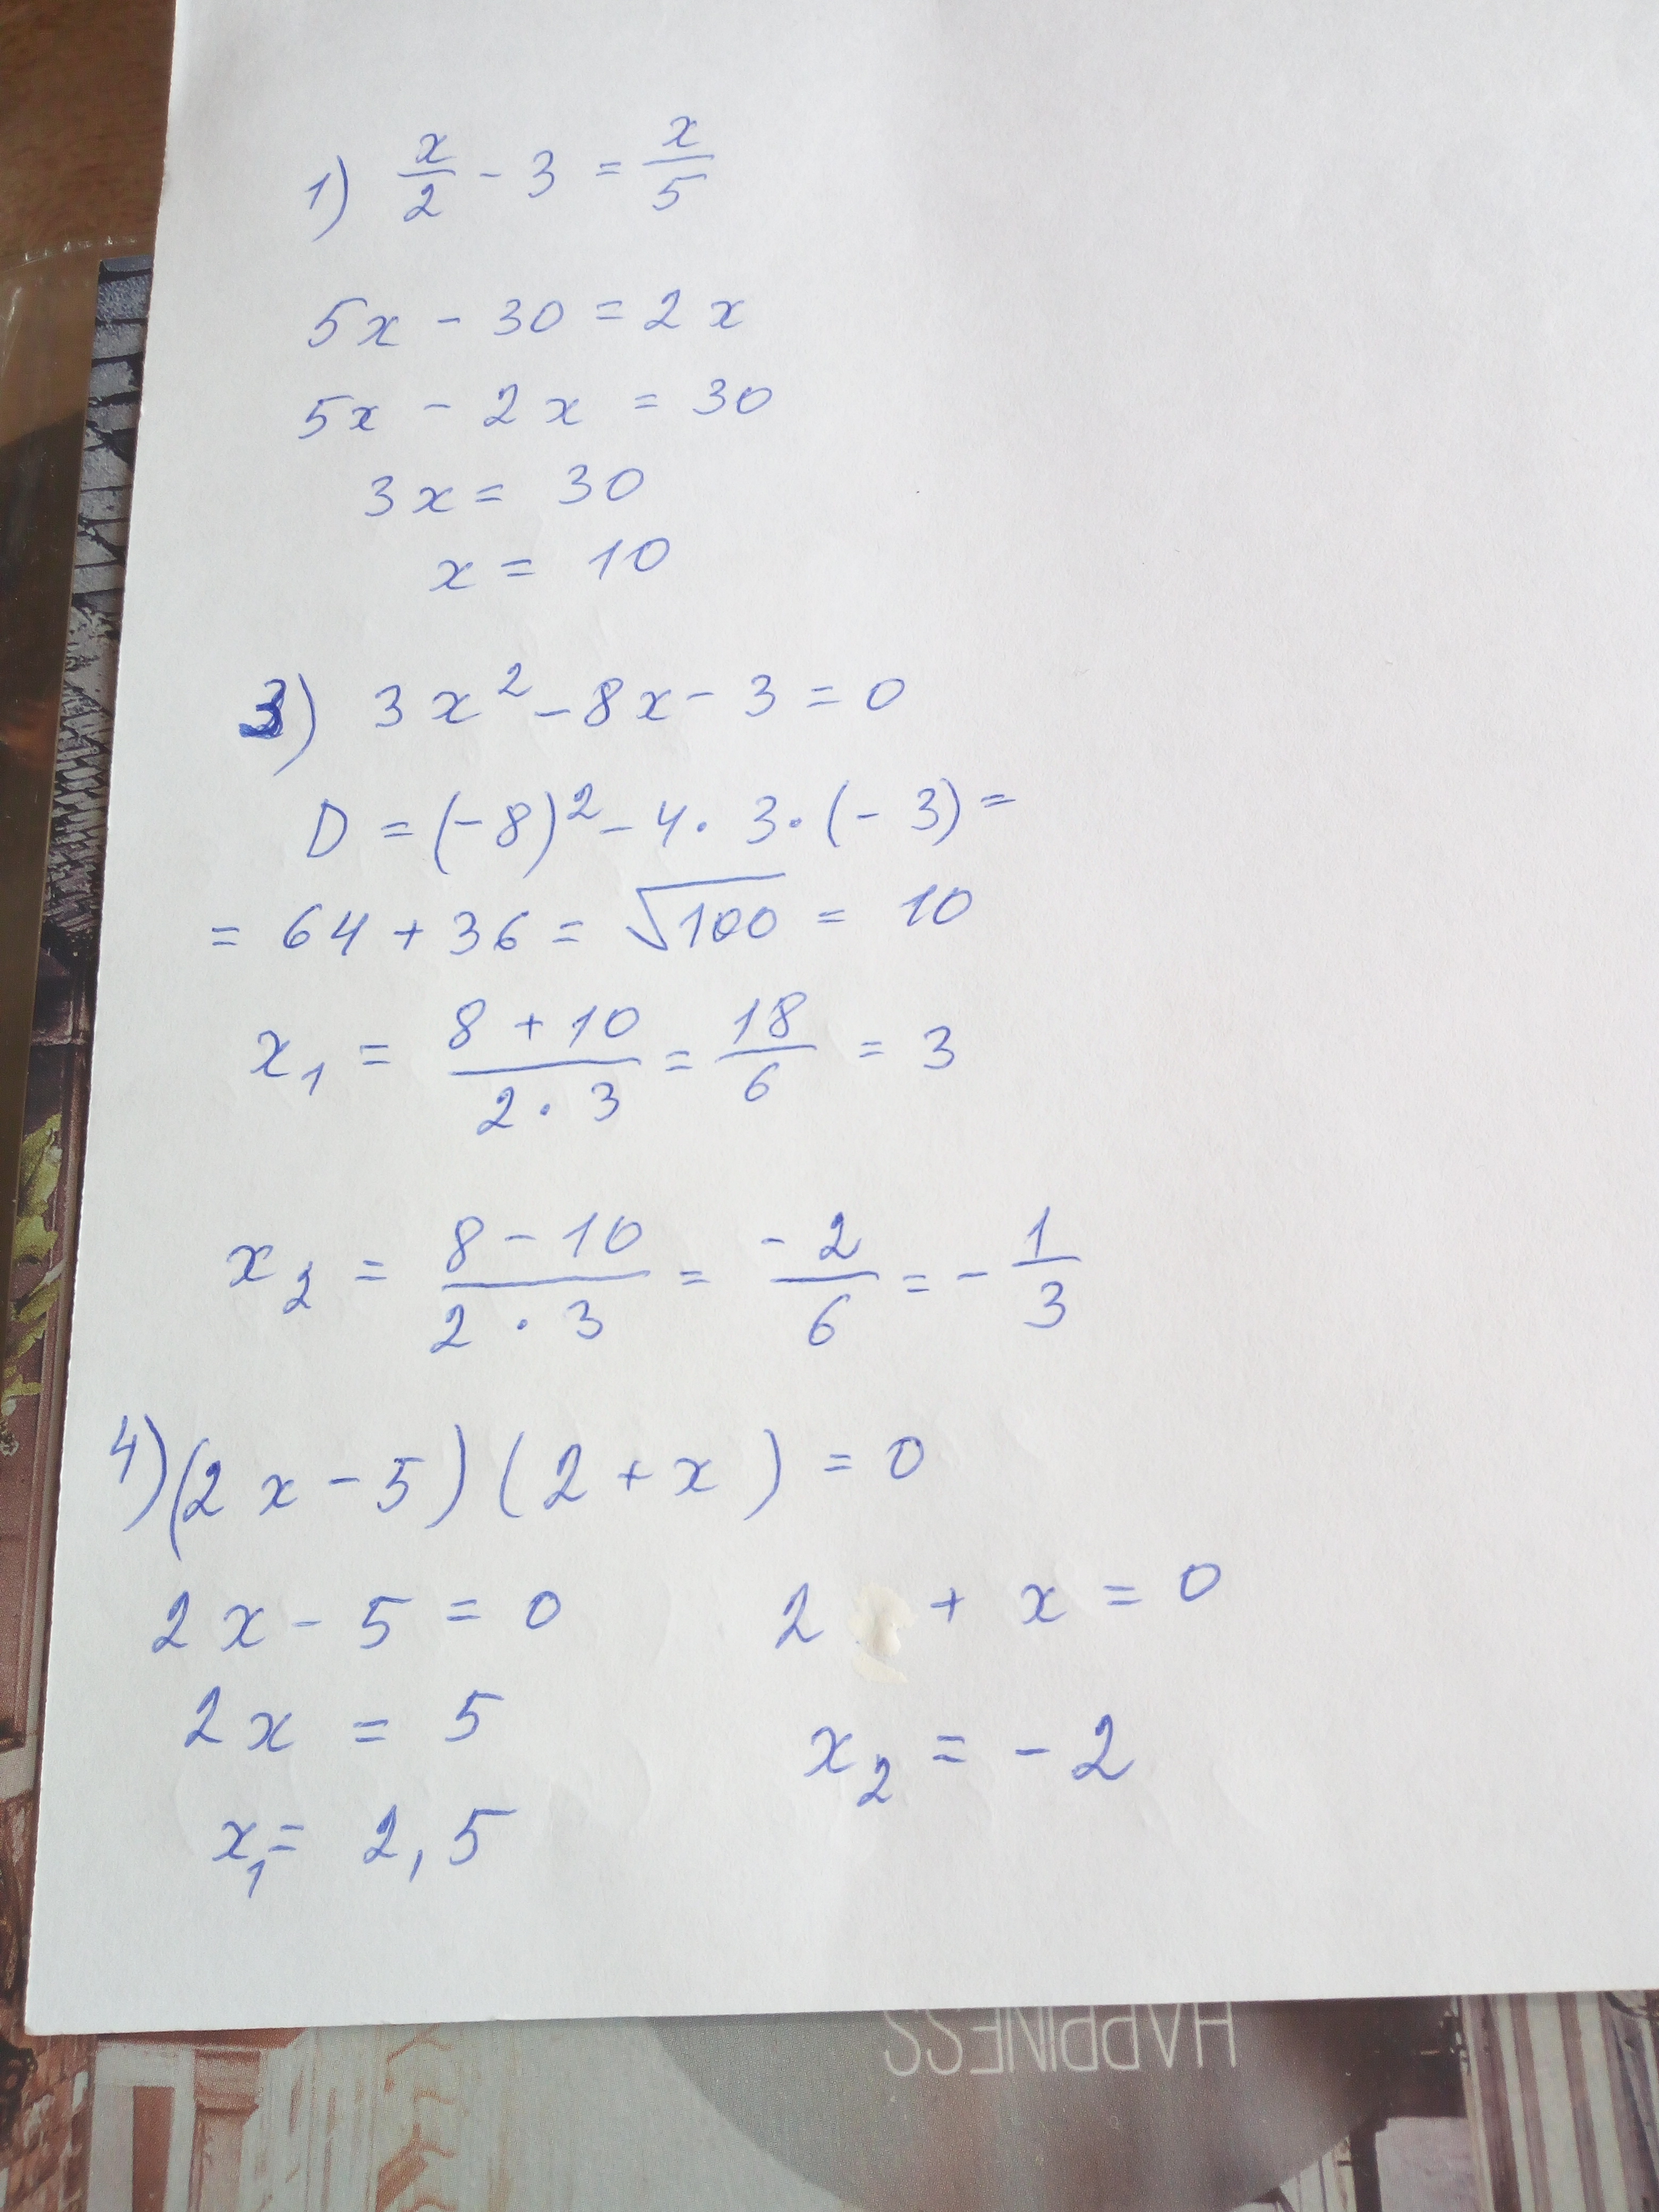 1) x/2 - 3 = x/5
5x - 30 = 2x
5x - 2x = 30
3x = 30
x = 10
3) 3x² - 8x - 3 = 0
D = (-8)² - 4 · 3 · (- 3) =
= 64 + 36 = √100 = 10
x₁ = (8 + 10)/(2 · 3) = 18/6 = 3
x₂ = (8 - 10)/(2 · 3) = -2/6 = -1/3
4) (2x - 5)(2 + x) = 0
2x - 5 = 0 2 + x = 0
2x = 5 x₂ = - 2
x₁ = 2,5
HAPPINESS